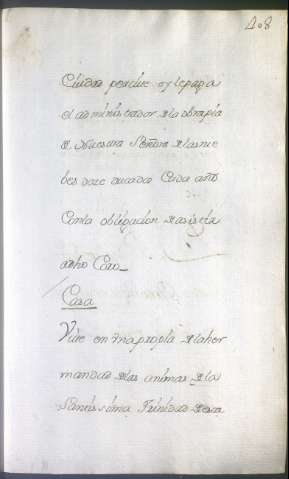 408
Ciudad porque oy le paga
el administrador de la obra pia
de Nuestra Señora de las nie
bes doze ducados Cada año
Con la obligacion de asistir a
dicho Coro
Casa
Vive en una propia de la her
mandad de las animas de la
Santissima Trinidad de esta